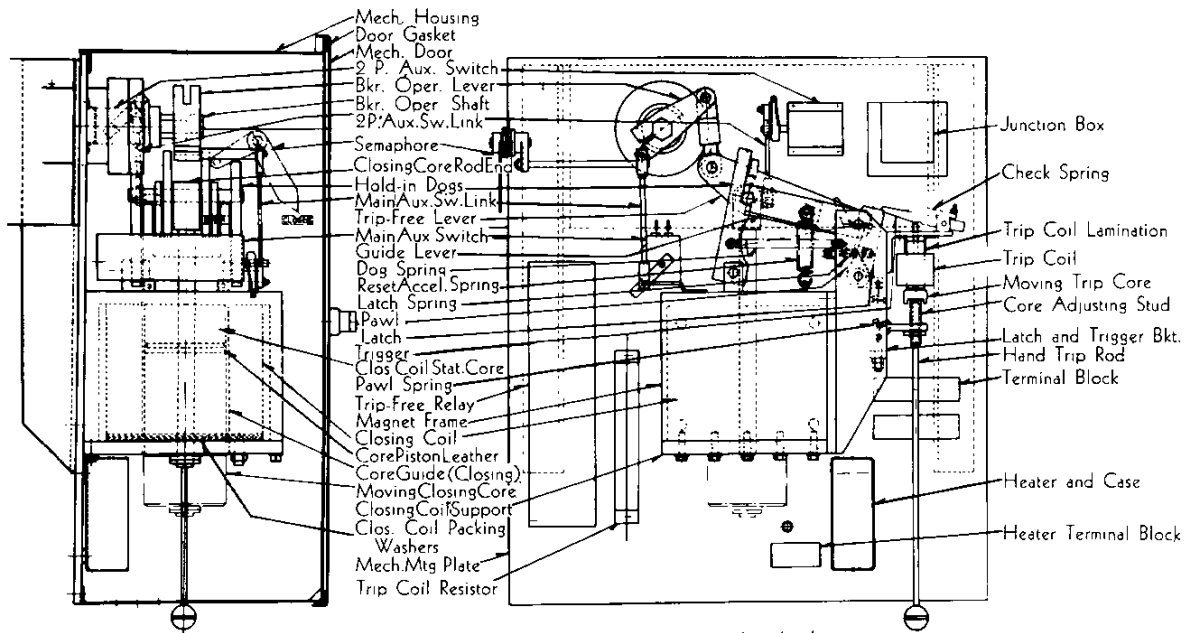 Mech. Housing
Door Gasket
Mech. Door
2 P. Aux. Switch
Bkr. Oper. Lever
Bkr. Oper Shaft
2P. Aux. Sw. Link
Semaphore
Closing Core Rod End
Hold-in Dogs
Main Aux. Sw. Link
Trip-Free Lever
Main Aux Switch
Guide Lever
Dog Spring
Reset Accel. Spring
Latch Spring
Pawl
Latch
Trigger
Clos. Coil Stat. Core
Pawl Spring
Trip-Free Relay
Magnet Frame
Closing Coil
Core Piston Leather
Core Guide (Closing)
Moving Closing Core
Closing Coil Support
Clos. Coil Packing
Washers
Mech. Mtg Plate
Trip Coil Resistor
Junction Box
Check Spring
Trip Coil Lamination
Trip Coil
Moving Trip Core
Core Adjusting Stud
Latch and Trigger Bkt.
Hand Trip Rod
Terminal Block
Heater and Case
Heater Terminal Block